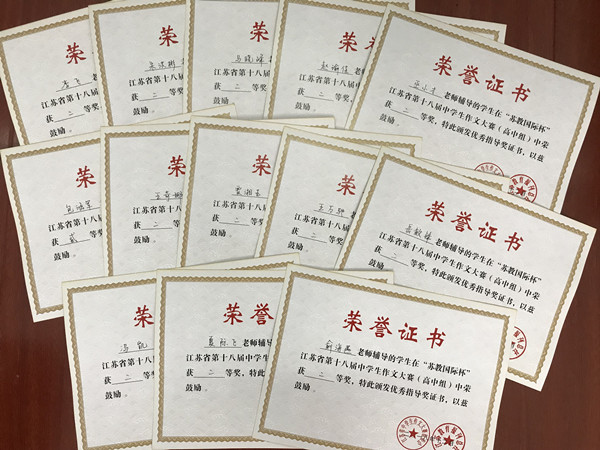 荣
老
江苏省第十八届
获 二
鼓励。
荣
江苏省第十八届
获 二 等奖
荣
江苏省第十八届中
获 二 等奖
荣
老师
江苏省第十八届中
获 二 等奖，
荣誉证书
老师辅导的学生在“苏教国际杯”
江苏省第十八届中学生作文大赛（高中组）中荣
获 二 等奖，特此颁发优秀指导奖证书，以兹
鼓励。
荣
江苏省第十八届
获 贰 等奖
鼓励。
荣
江苏省第十八届
获 二 等奖
鼓励。
荣
江苏省第十八届
获 二 等奖
鼓励。
荣
江苏省第十八届中
获 二 等奖
鼓励。
荣誉证书
老师辅导的学生在“苏教国际杯”
江苏省第十八届中学生作文大赛（高中组）中荣
获 二 等奖，特此颁发优秀指导奖证书，以兹
鼓励。
荣
江苏省第十八届
获 二 等奖
鼓励。
荣
老师辅
江苏省第十八届中学
获 二 等奖，特此
鼓励。
荣誉证书
老师辅导的学生在“苏教国际杯”
江苏省第十八届中学生作文大赛（高中组）中荣
获 二 等奖，特此颁发优秀指导奖证书，以兹
鼓励。